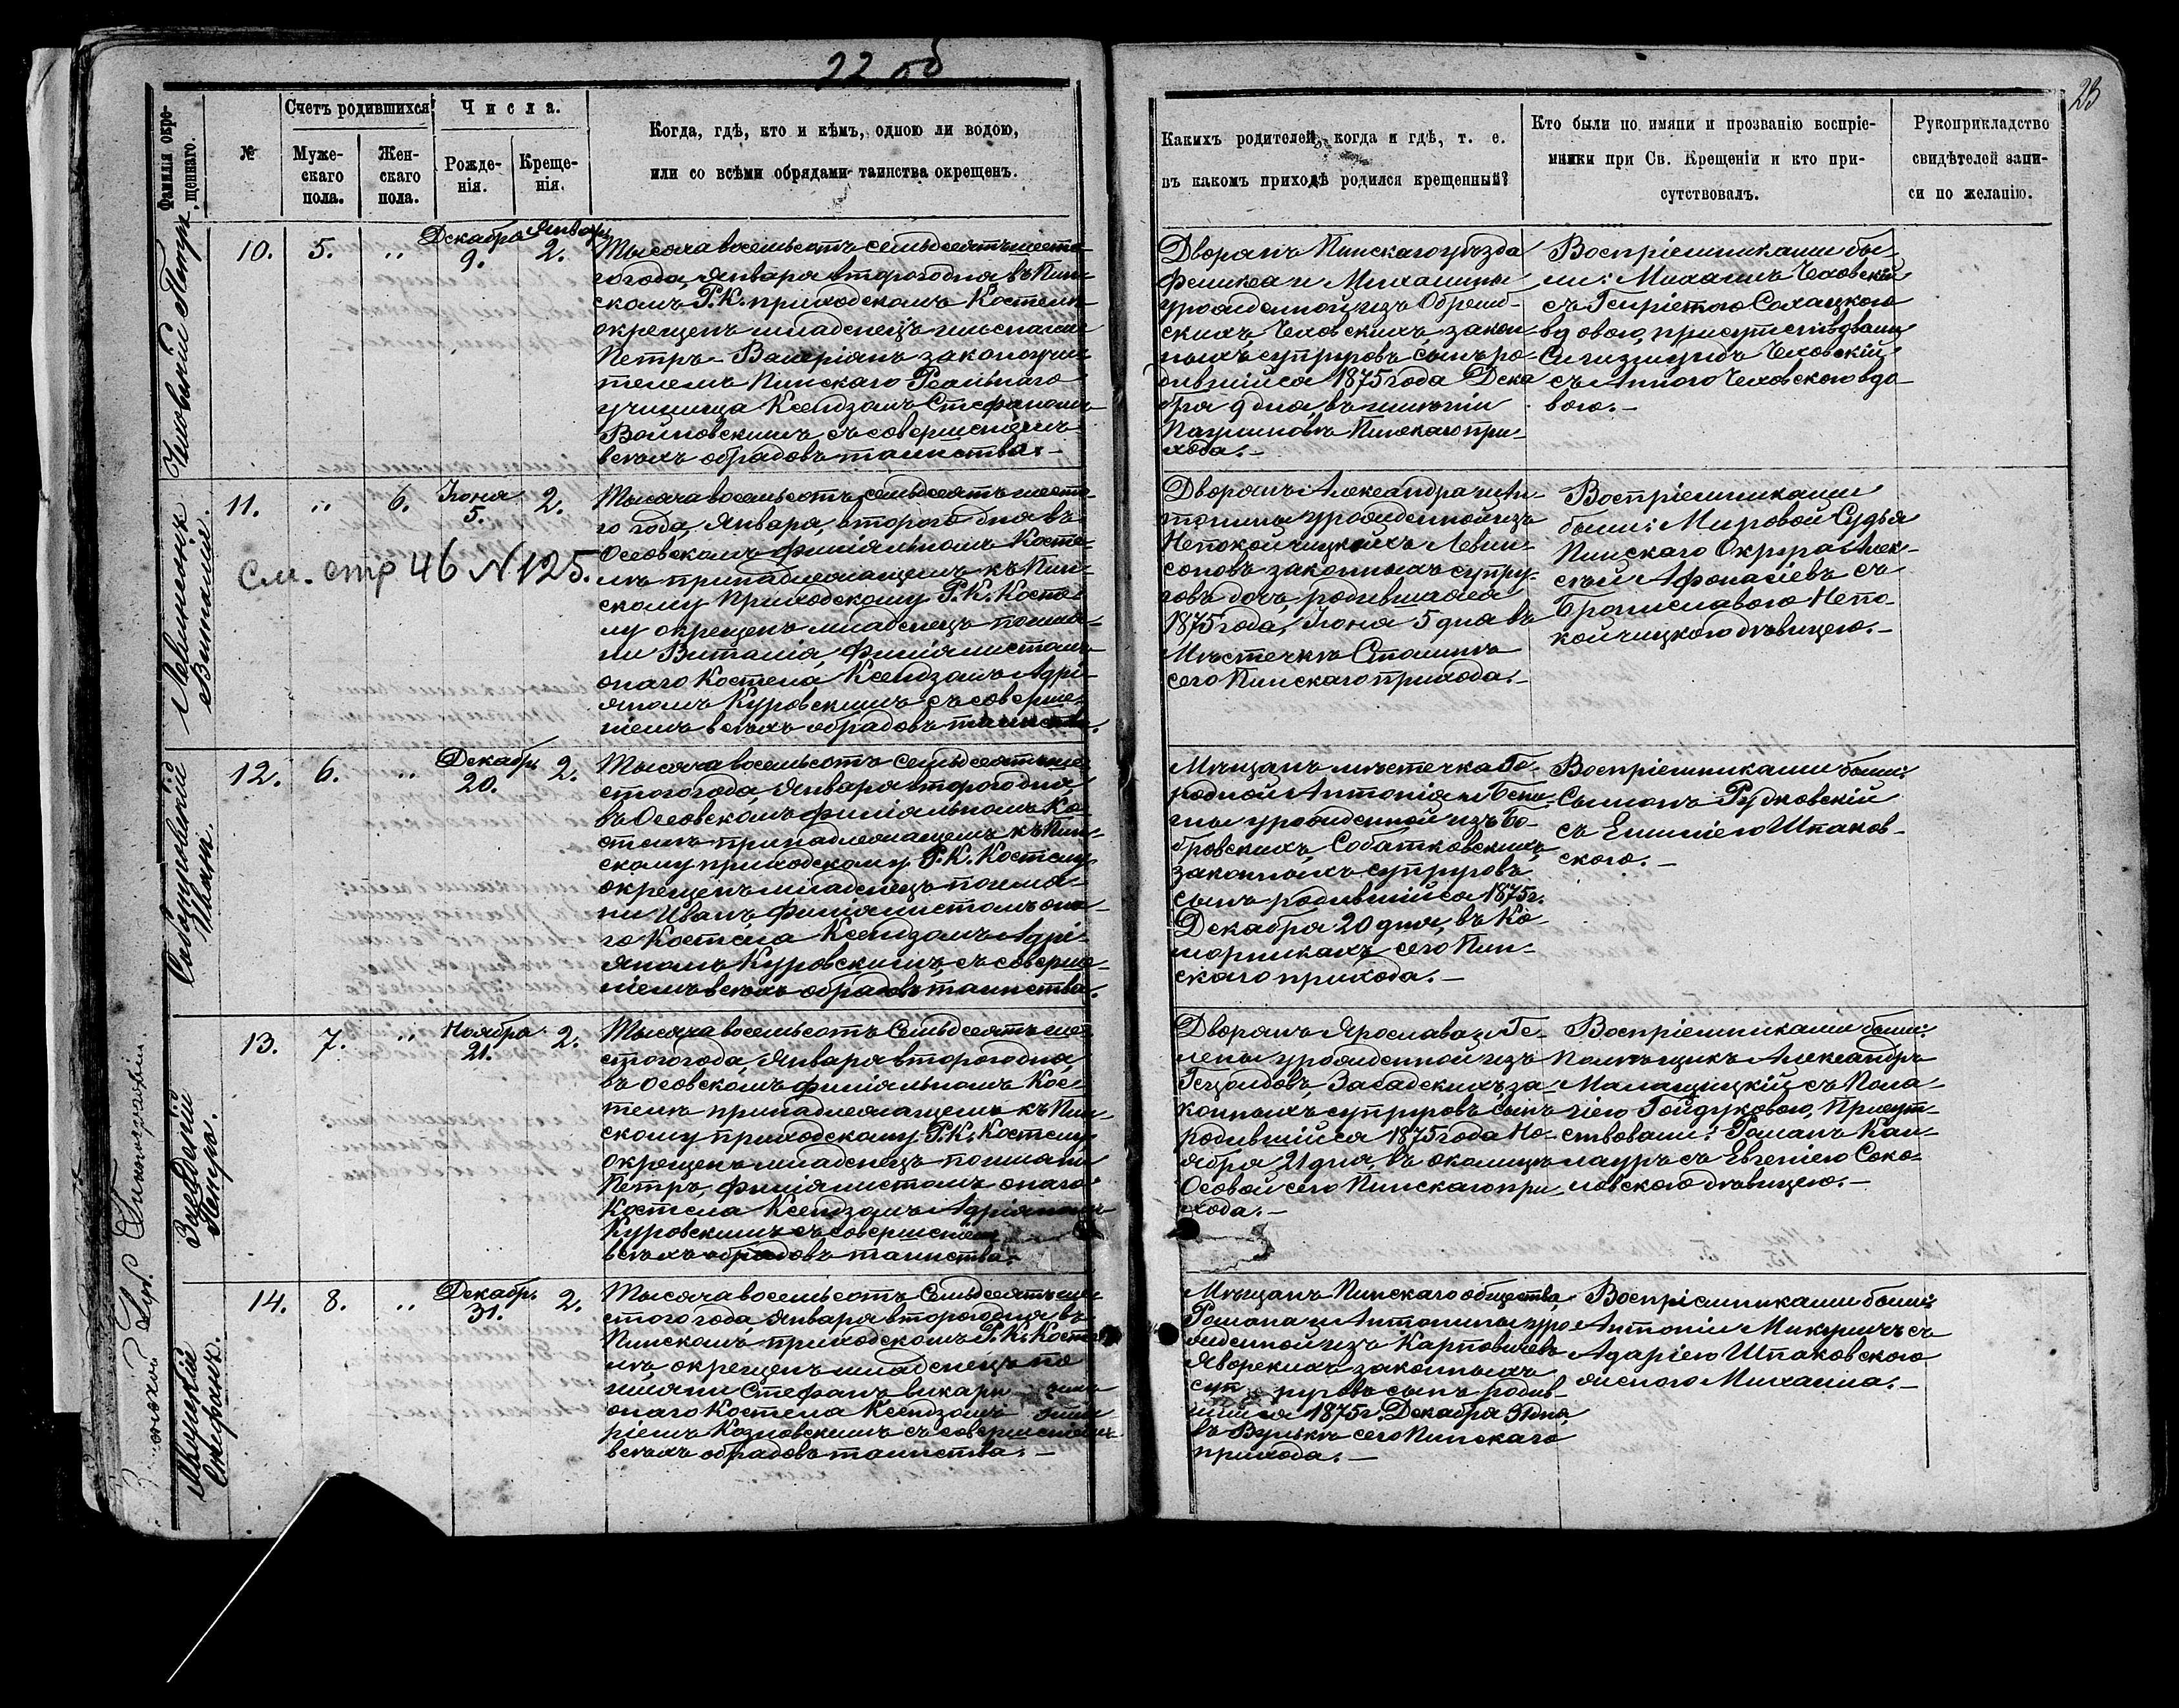 22 об
23
Фамилія окре-
щеннаго.
№
Счетъ родившихся
Муже-
скаго
пола.
Жен-
скаго
пола.
Числа.
Рожде-
нія.
Креще-
нія.
Когда, гдѣ, кто и кѣмъ, одною ли водою,
или со всѣми обрядами таинства окрещенъ.
Какихъ родителей, когда и гдѣ, т. е.
въ какомъ приходѣ родился крещенный?
Кто были по имяни и прозванію воспріе-
мники при Св. Крещеніи и кто при-
сутствовалъ.
Рукоприкладство
свидѣтелей запи-
си по желанію.
Чеховскій Петръ
10.
5.
„
Декабря
9.
Январь
2.
Тысяча восемьсотъ семьдесятъ шеста-
го года, Января второго дня, въ Пин-
скомъ Р. К. приходскомъ Костелѣ
окрещенъ младенецъ именами
Петръ-Валеріанъ законоучи-
телемъ Пинскаго Реальнаго
училища Ксендзомъ Стефаномъ
Войновскимъ съ совершеніемъ
всѣхъ обрядовъ таинства.-
Дворянъ Пинскаго уѣзда
Феликса и Михалины
урожденной изъ Обремб-
скихъ, Чеховскихъ, закон-
ныхъ супруговъ сынъ ро-
дившійся 1875 года Дека
бря 9 дня, въ имѣніи
Пинскаго при-
хода.-
Воспріемниками бы-
ли: Михаилъ Чеховскій
съ Генріетою Сохацкою
вдовою, присутствовали
Сигизмундъ Чеховскій
съ Анною Чеховскою вдо
вою.-
Левинсонъ
Виталія.
11.
„
6.
Іюня
5.
2.
См. стр 46 N 125.
Тысяча восемьсотъ семьдесятъ шеста-
го года, Января, второго дня въ
Осовскомъ филіяльномъ Косте-
лѣ принадлежащемъ къ Пин-
скому Приходскому Р. К. Косте-
лу окрещенъ младенецъ по имя-
ни Виталія, филіялистомъ
онаго Костела Ксендзомъ Адрі-
яномъ Куровскимъ съ соверше-
ніемъ всѣхъ обрядовъ таинства.
Дворянъ Александра и Ан-
тонины урожденной изъ
Непокойчицкихъ Левин-
соновъ законныхъ супру-
говъ дочь, родившаяся
1875 года, Іюня 5 дня въ
Мѣстечкѣ Столинѣ
сего Пинскаго прихода.-
Воспріемниками
были: Мировой Судья
Пинскаго Округа Алек-
сѣй Афонасіевъ съ
Брониславою Непо-
койчицкою дѣвицею.-
Собатковскій
Иванъ.
12.
6.
„
Декабр.
20.
2.
Тысяча восемьсотъ семьдесятъ ше-
стого года, Января второго дня,
въ Осовскомъ филіяльномъ Ко-
стелѣ принадлежащемъ къ Пин-
скому приходскому Р. К. Костелу
окрещенъ младенецъ по имя-
ни Иванъ, филіялистомъ она-
го Костела Ксендзомъ Адрі-
яномъ Куровскимъ, съ соверше-
ніемъ всѣхъ обрядовъ таинства.
Мѣщанъ мѣстечка Го-
родной Антонія и
урожденной изъ Бо-
бровскихъ, Собатковскихъ,
законныхъ супруговъ
сынъ родившійся 1875 г.
Декабря 20 дня, въ Ко-
морникахъ сего Пин-
скаго прихода.-
Воспріемниками были:
Сымонъ Рудковскій
съ Емиліею Шпаков-
скою.-
Засадскій
Петръ.
13.
7.
„
Ноября
21.
2.
Тысяча восемьсотъ Семьдесятъ ше-
стого года, Января второго дня,
въ Осовскомъ филіяльномъ Кос-
телѣ принадлежащемъ къ Пин-
скому приходскому Р. К. Костелу
окрещенъ младенецъ по имяни
Петръ, филіялистомъ онаго
Костела Ксендзомъ Адріяномъ
Куровскимъ съ совершеніемъ
всѣхъ обрядовъ таинства.-
Дворянъ Ярослава и Ге-
лены урожденной изъ
Гецолдовъ, Засадскихъ, за-
конныхъ супруговъ сынъ
родившійся 1875 года Но-
ября 21 дня, въ околицѣ
Осовой сего Пинскаго при-
хода.-
Воспріемниками были:
Помѣщикъ Александръ
Малащицкій съ Пела-
гіею Гойдуковою, Присут-
ствовали: Романъ Кан-
лауръ съ Евгеніею Соко-
ловскою дѣвицею.-
Яворскій
Стефанъ.
14.
8.
„
Декабр.
31.
2.
Тысяча восемьсотъ Семьдесятъ ше-
стого года, Января второго дня, въ
Пинскомъ приходскомъ Р. К. Косте-
лѣ, окрещенъ младенецъ по
имяни Стефанъ викарн
онаго Костела Ксендзомъ
ріемъ Козловскимъ съ совершеніемъ
всѣхъ обрядовъ таинства.-
Мѣщанъ Пинскаго общества,
Романа и Антонины уро-
жденной изъ Карповичевъ
Яворскихъ законныхъ
суп руговъ сынъ родив-
шійся 1875 г. Декабря 31 дня,
въ Вулькѣ сего Пинскаго
прихода.-
Воспріемниками были:
Антоній Микуличъ съ
Адаріею Шпаковскою
женою Михаила.-